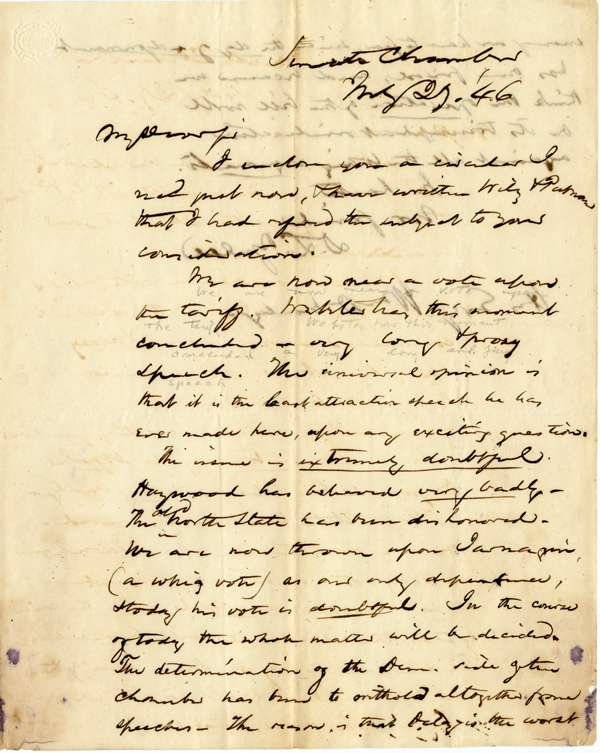 Senate Chamber
July 27. '46
My Dear Sir
I enclose you a circular I
recd just now, & have written Wily & Putnam
that I had referred the subject to your
consideration.
We are now near a vote upon
the tariff. Webster has this moment
concluded a very long & prosy
speech. The universal opinion is
that it is the least attractive speech he has
ever made here, upon any exciting question.
The issue is extremely doubtful.
Haywood has behaved very badly -
The old North State has been dishonored -
We are now thrown upon Jarnagin,
(a whig vote) as our only dependence,
& today his vote is doubtful. In the course
of today the whole matter will be decided.
The determination of the Dem. side of the
chamber has been to withhold altogether from
speeches - The reason is that Delay is the worst